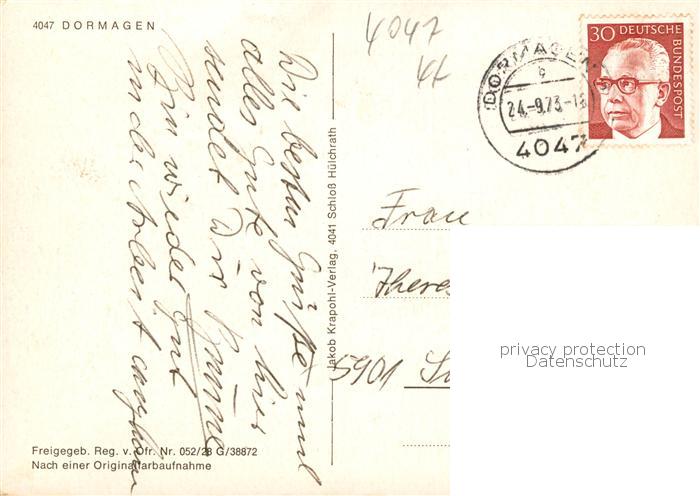 4047 DORMAGEN
4047
30 DEUTSCHE
BUNDESPOST
DORMAGEN
24.-9.73-18
4047
Die besten Grüße und
alles Gute von hier
sendet Dir
Bin wieder gut
in der Arbeit
Jakob Krapohl-Verlag, 4041 Schloß Hülchrath
Frau
There
5901
privacy protection
Datenschutz
Freigegeb. Reg. v. Dfr. Nr. 052/28 G/38872
Nach einer Originalfarbaufnahme